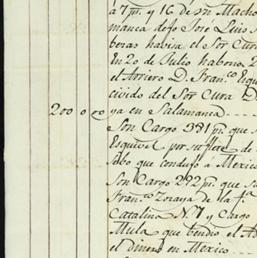 a 7 p.s, y 16 de Sn Macho
manca dejo Jose Luis
boras havia el Sor Cura
En 20 de Julio habono 2
el Arriero D. Fran.co Esqui
civido del Sor Cura D
200 0 00 ya en Salamanca
Son Cargo 331 p.s que s
Esquivel por su flete de
sabo que condujo a Mexico
Son Cargo 292 p.s que s
Fran.co Zoraya de la f.a
Catalina N. 7 y Cargo
Mula que bendio el Ad
el dinero en Mexico